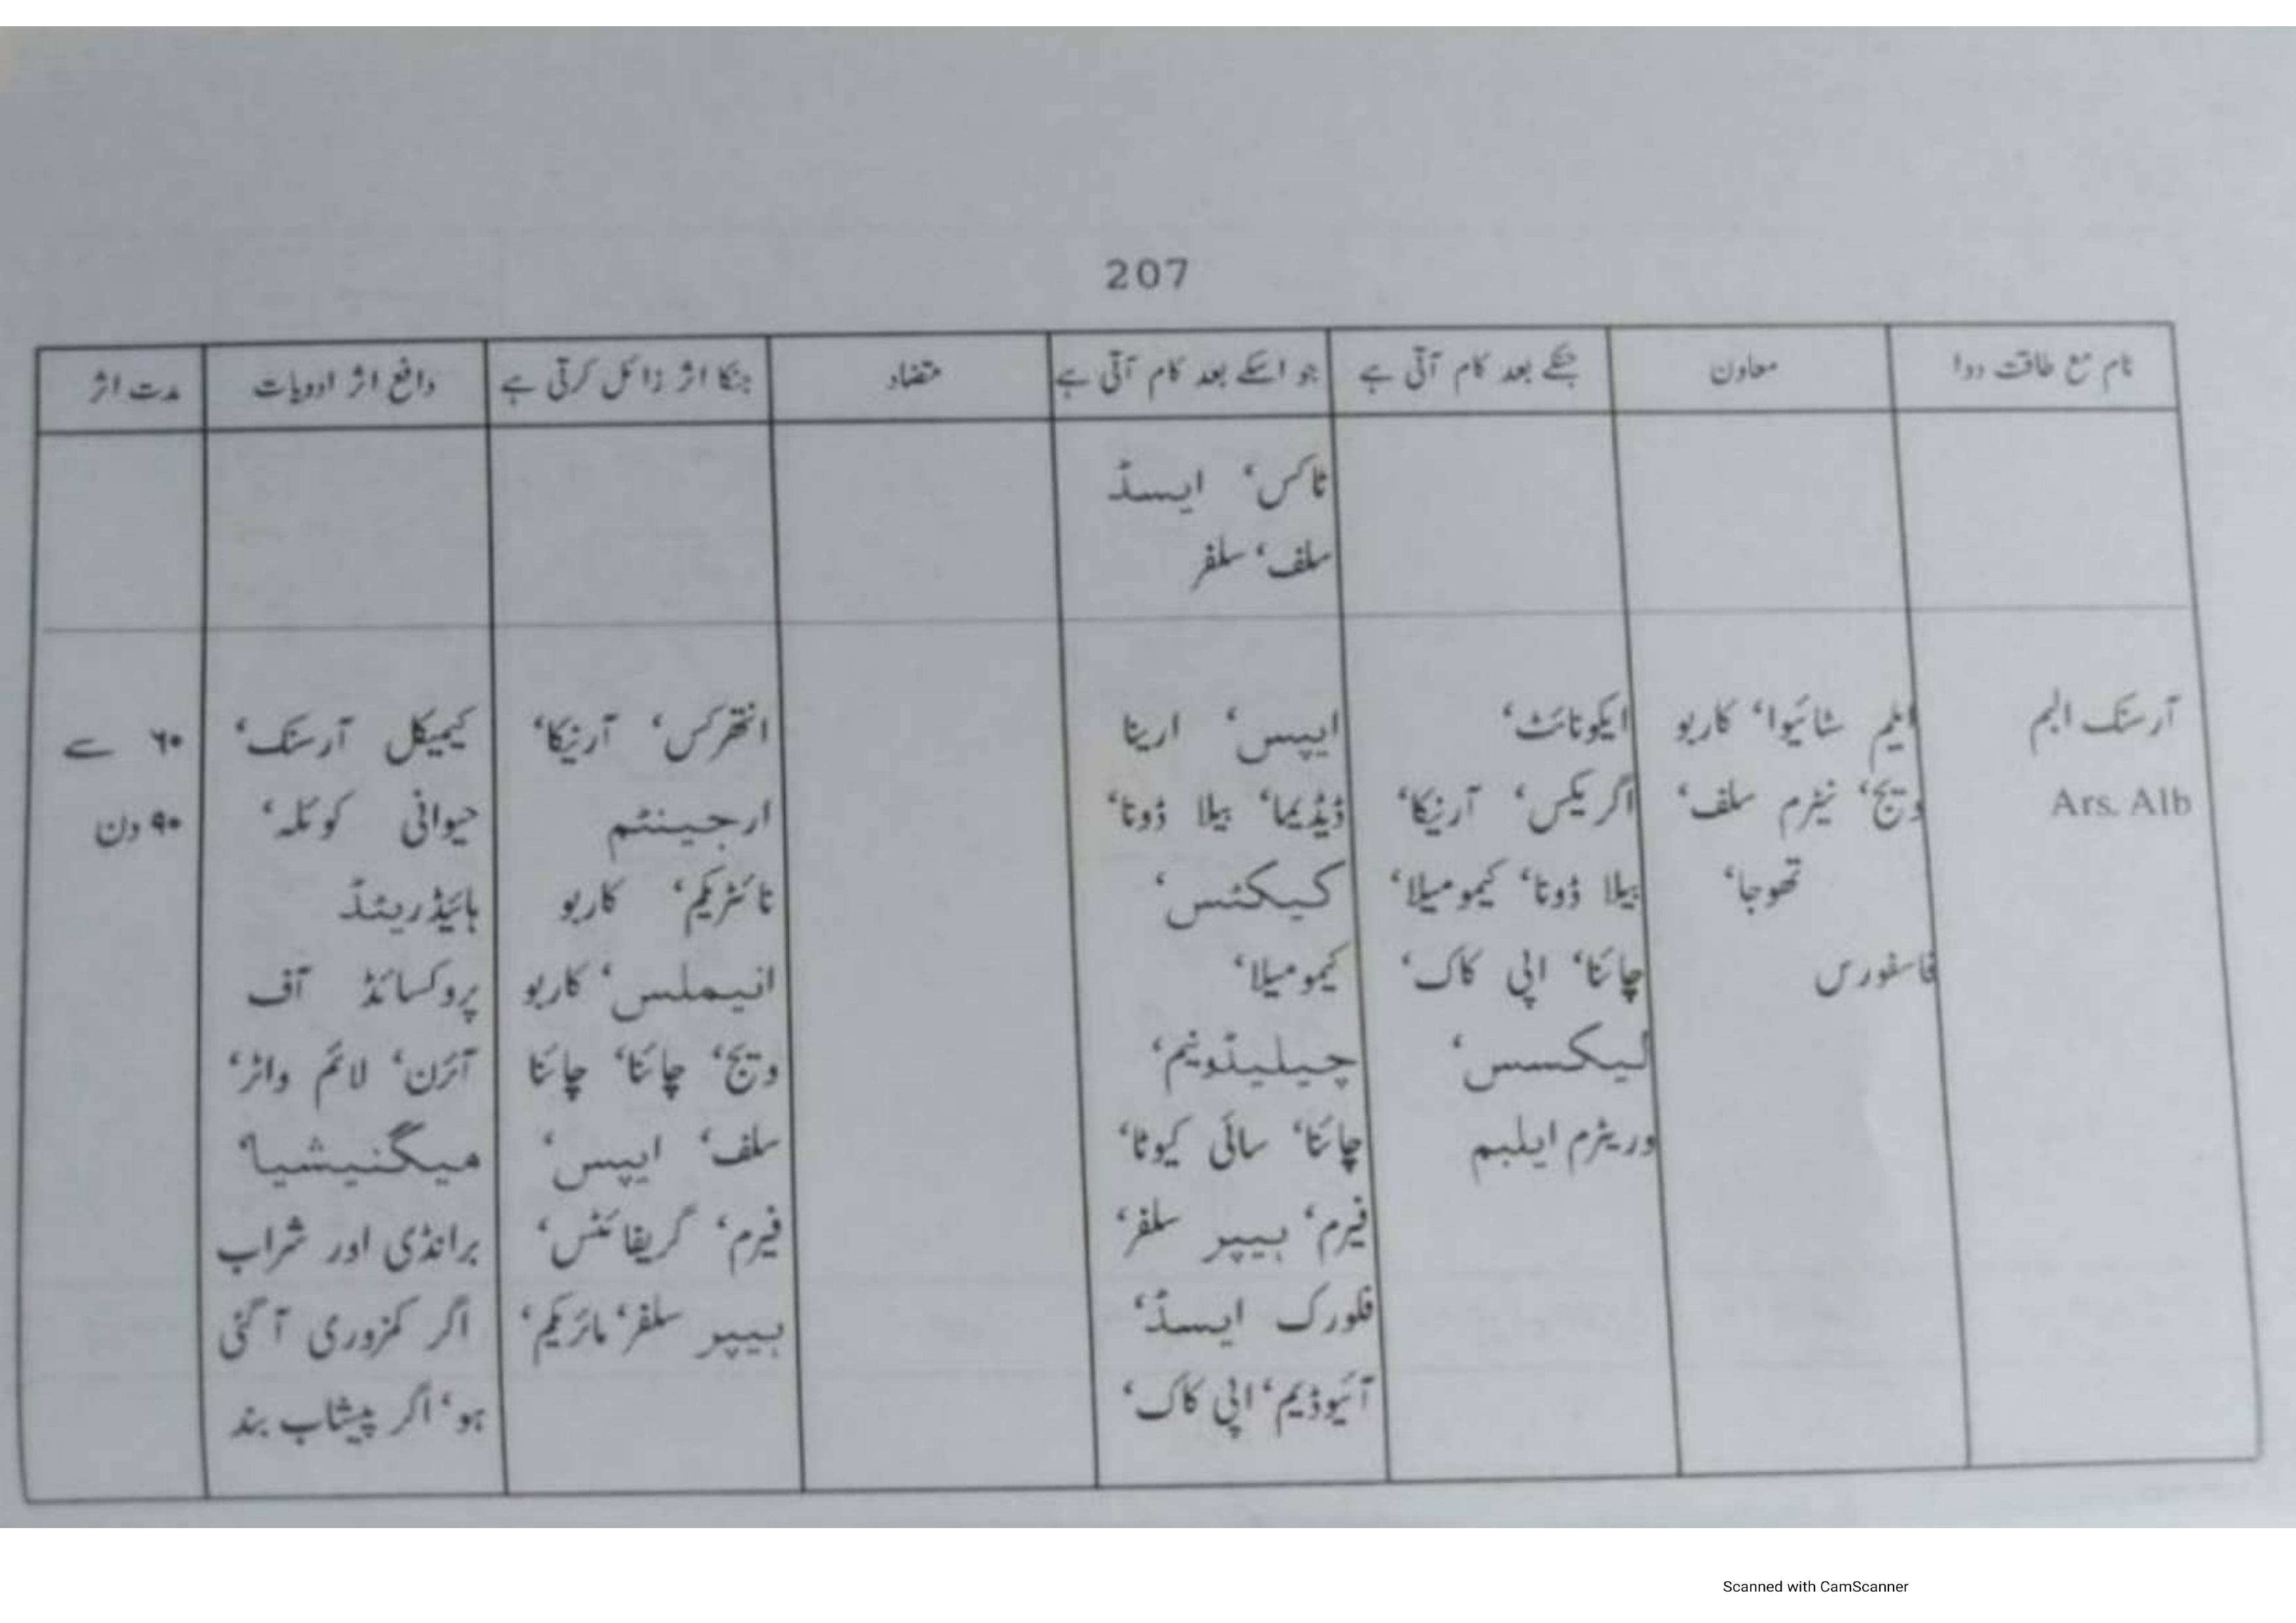 207
نام مع طاقت دوا
معاون
جنکے بعد کام آتی ہے
جو اسکے بعد کام آتی ہے
متضاد
جنکا اثر زائل کرتی ہے
دافع اثر ادویات
مدت اثر
ٹاکس، ایسڈ
سلف، سلفر
آرسنک البم
Ars. Alb
ایلم سٹائیوا، کاربو
ویج، نیٹرم سلف،
تھوجا،
فاسفورس
ایکونائٹ،
اگریکس، آرنیکا،
بیلا ڈونا، کیمومیلا،
چائنا، اپی کاک،
لیکسس،
وریٹرم ایلبم
ایپس، ارینا
ڈیڈیما، بیلا ڈونا،
کیکٹس،
کیمومیلا،
چیلیڈونیم،
چائنا، سائی کیوٹا،
فیرم، ہیپر سلفر،
فلورک ایسڈ،
آئیوڈیم، اپی کاک،
انتھرکس، آرنیکا،
ارجینٹم
نائٹریکم، کاربو
انیملس، کاربو
ویج، چائنا، چائنا
سلف، ایپس،
فیرم، گریفائٹس،
ہیپر سلفر،
کیمیکل آرسنک،
حیوانی کوئلہ،
ہائیڈریٹڈ
پروکسائڈ آف
آئرن، لائم واٹر،
میگنیشیا،
برانڈی اور شراب
اگر کمزوری آ گئی
ہو، اگر پیشاب بند
۶۰ سے
۹۰ دن
Scanned with CamScanner